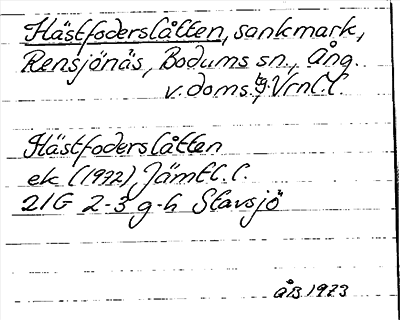 Hästfoderslåtten, sankmark,
Rensjönäs, Bodums sn., Ång.
v. doms. tg, Vrn l. l.
Hästfoderslåtten
ek (1972) Jämtl. l.
21G 2-3 g-h Stavsjö
ÅB 1973